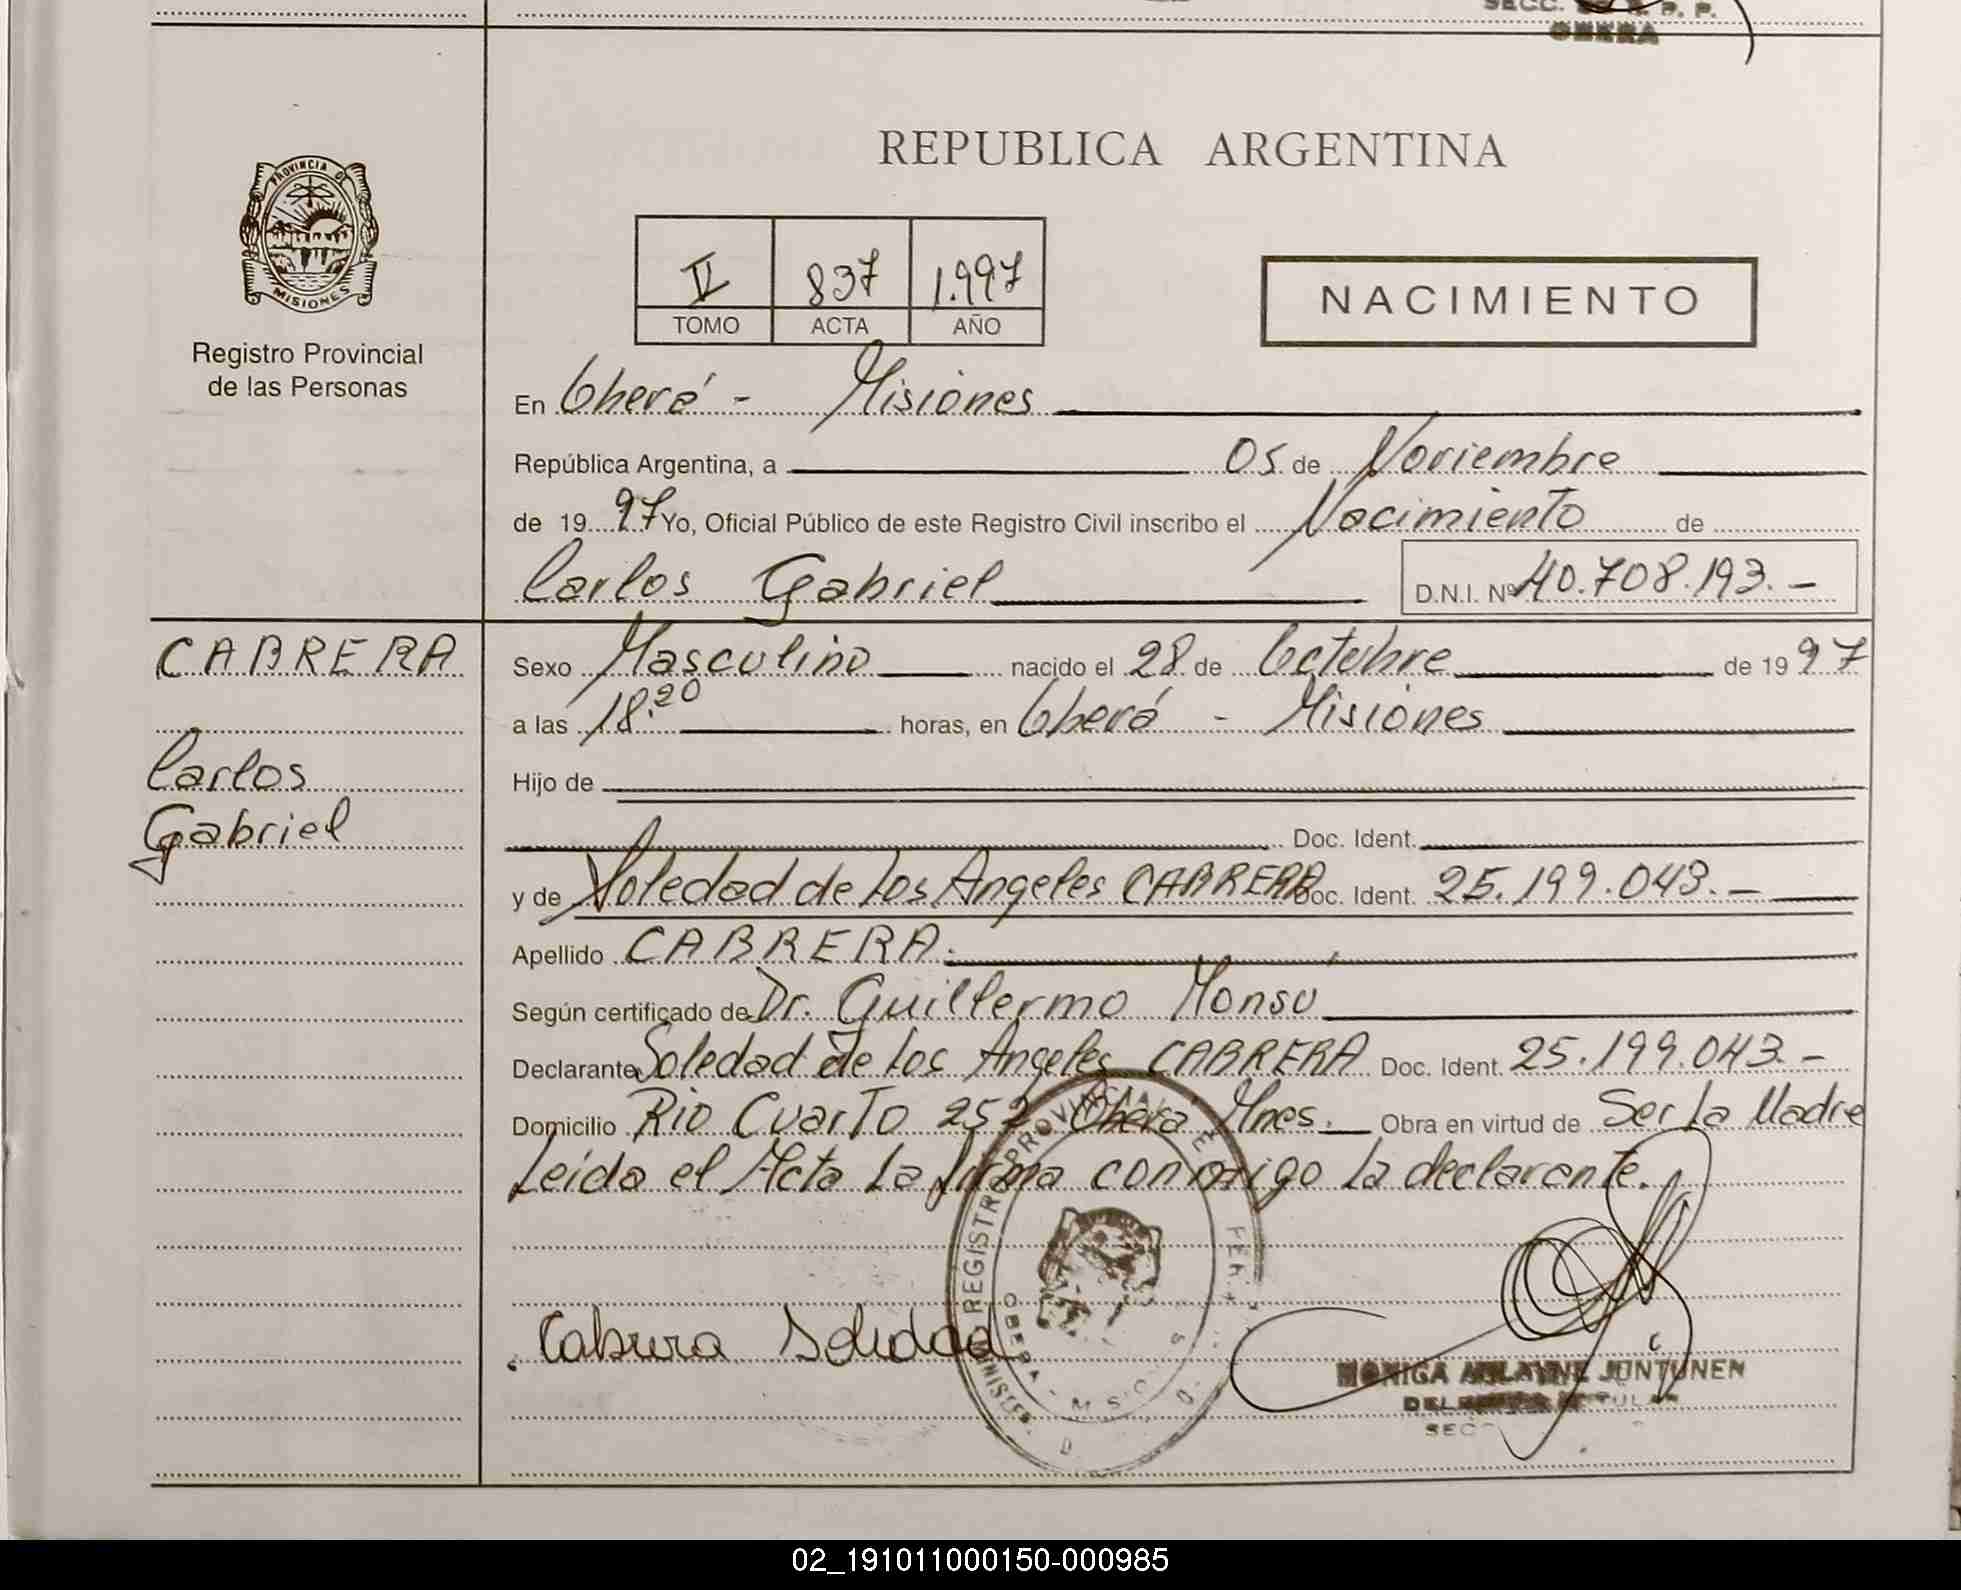 SECC. P. P.
OBERA
REPUBLICA ARGENTINA
PROVINCIA DE
MISIONES
Registro Provincial
de las Personas
II 837 1.997
TOMO ACTA AÑO
NACIMIENTO
En Oberá - Misiones
República Argentina, a 05 de Noviembre
de 19 97 Yo, Oficial Público de este Registro Civil inscribo el Nacimiento de
Carlos Gabriel D.N.I. Nº 40.708.193.-
CABRERA
Carlos
Gabriel
Sexo Masculino nacido el 28 de Octubre de 19 97
a las 18:20 horas, en Oberá - Misiones
Hijo de
Doc. Ident.
y de Soledad de Los Angeles CABRERA Doc. Ident. 25.199.043.-
Apellido CABRERA.
Según certificado de Dr. Guillermo Monsú
Declarante Soledad de Los Angeles CABRERA Doc. Ident. 25.199.043.-
Domicilio Río Cuarto 252 Oberá Mnes. Obra en virtud de Ser La Madre
Leída el Acta La firma conmigo La declarante.
REGISTRO PROVINCIAL
OBERA - MISIONES
Cabrera Soledad
MONICA JUNTUNEN
TITULAR
SECC
02_191011000150-000985